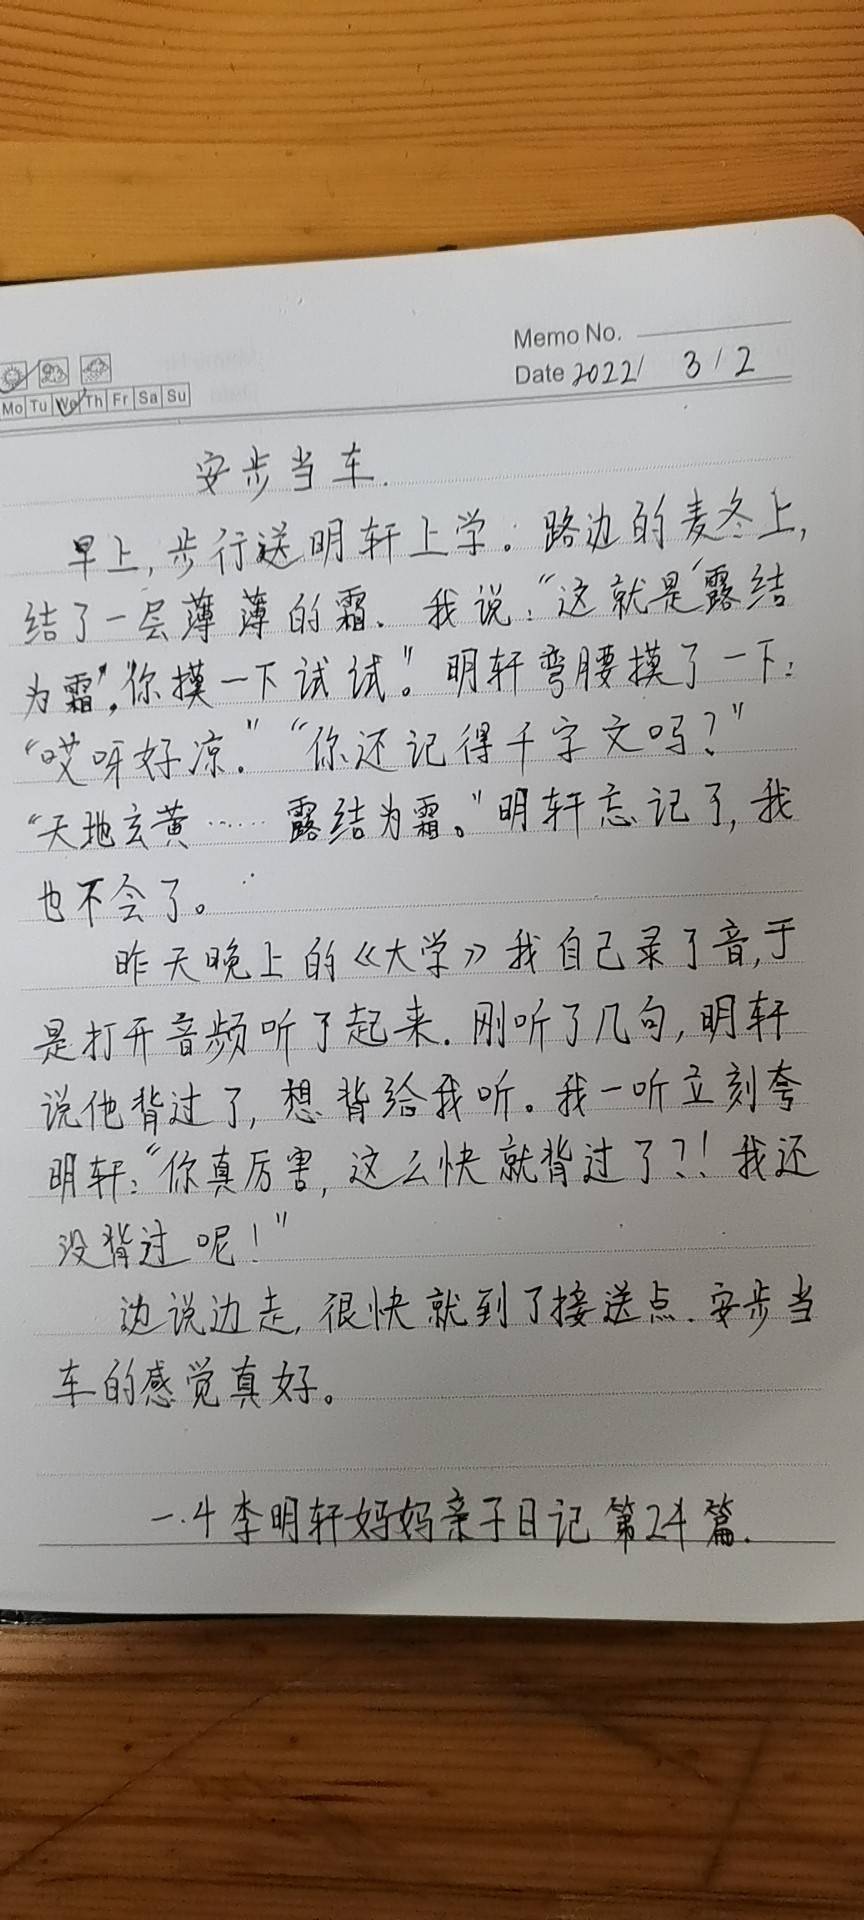 Memo No.
Date 2022/ 3/2
Mo Tu We Th Fr Sa Su
安步当车.
早上,步行送明轩上学。路边的麦冬上,
结了一层薄薄的霜.我说:“这就是‘露结
为霜’,你摸一下试试”。明轩弯腰摸了一下:
“哎呀好凉.”“你还记得千字文吗?”
“天地玄黄……露结为霜。”明轩忘记了,我
也不会了。
昨天晚上的《大学》我自己录了音,于
是打开音频听了起来.刚听了几句,明轩
说他背过了,想背给我听。我一听立刻夸
明轩:“你真厉害,这么快就背过了?!我还
没背过呢!”
边说边走,很快就到了接送点.安步当
车的感觉真好。
一.4李明轩妈妈亲子日记第24篇.